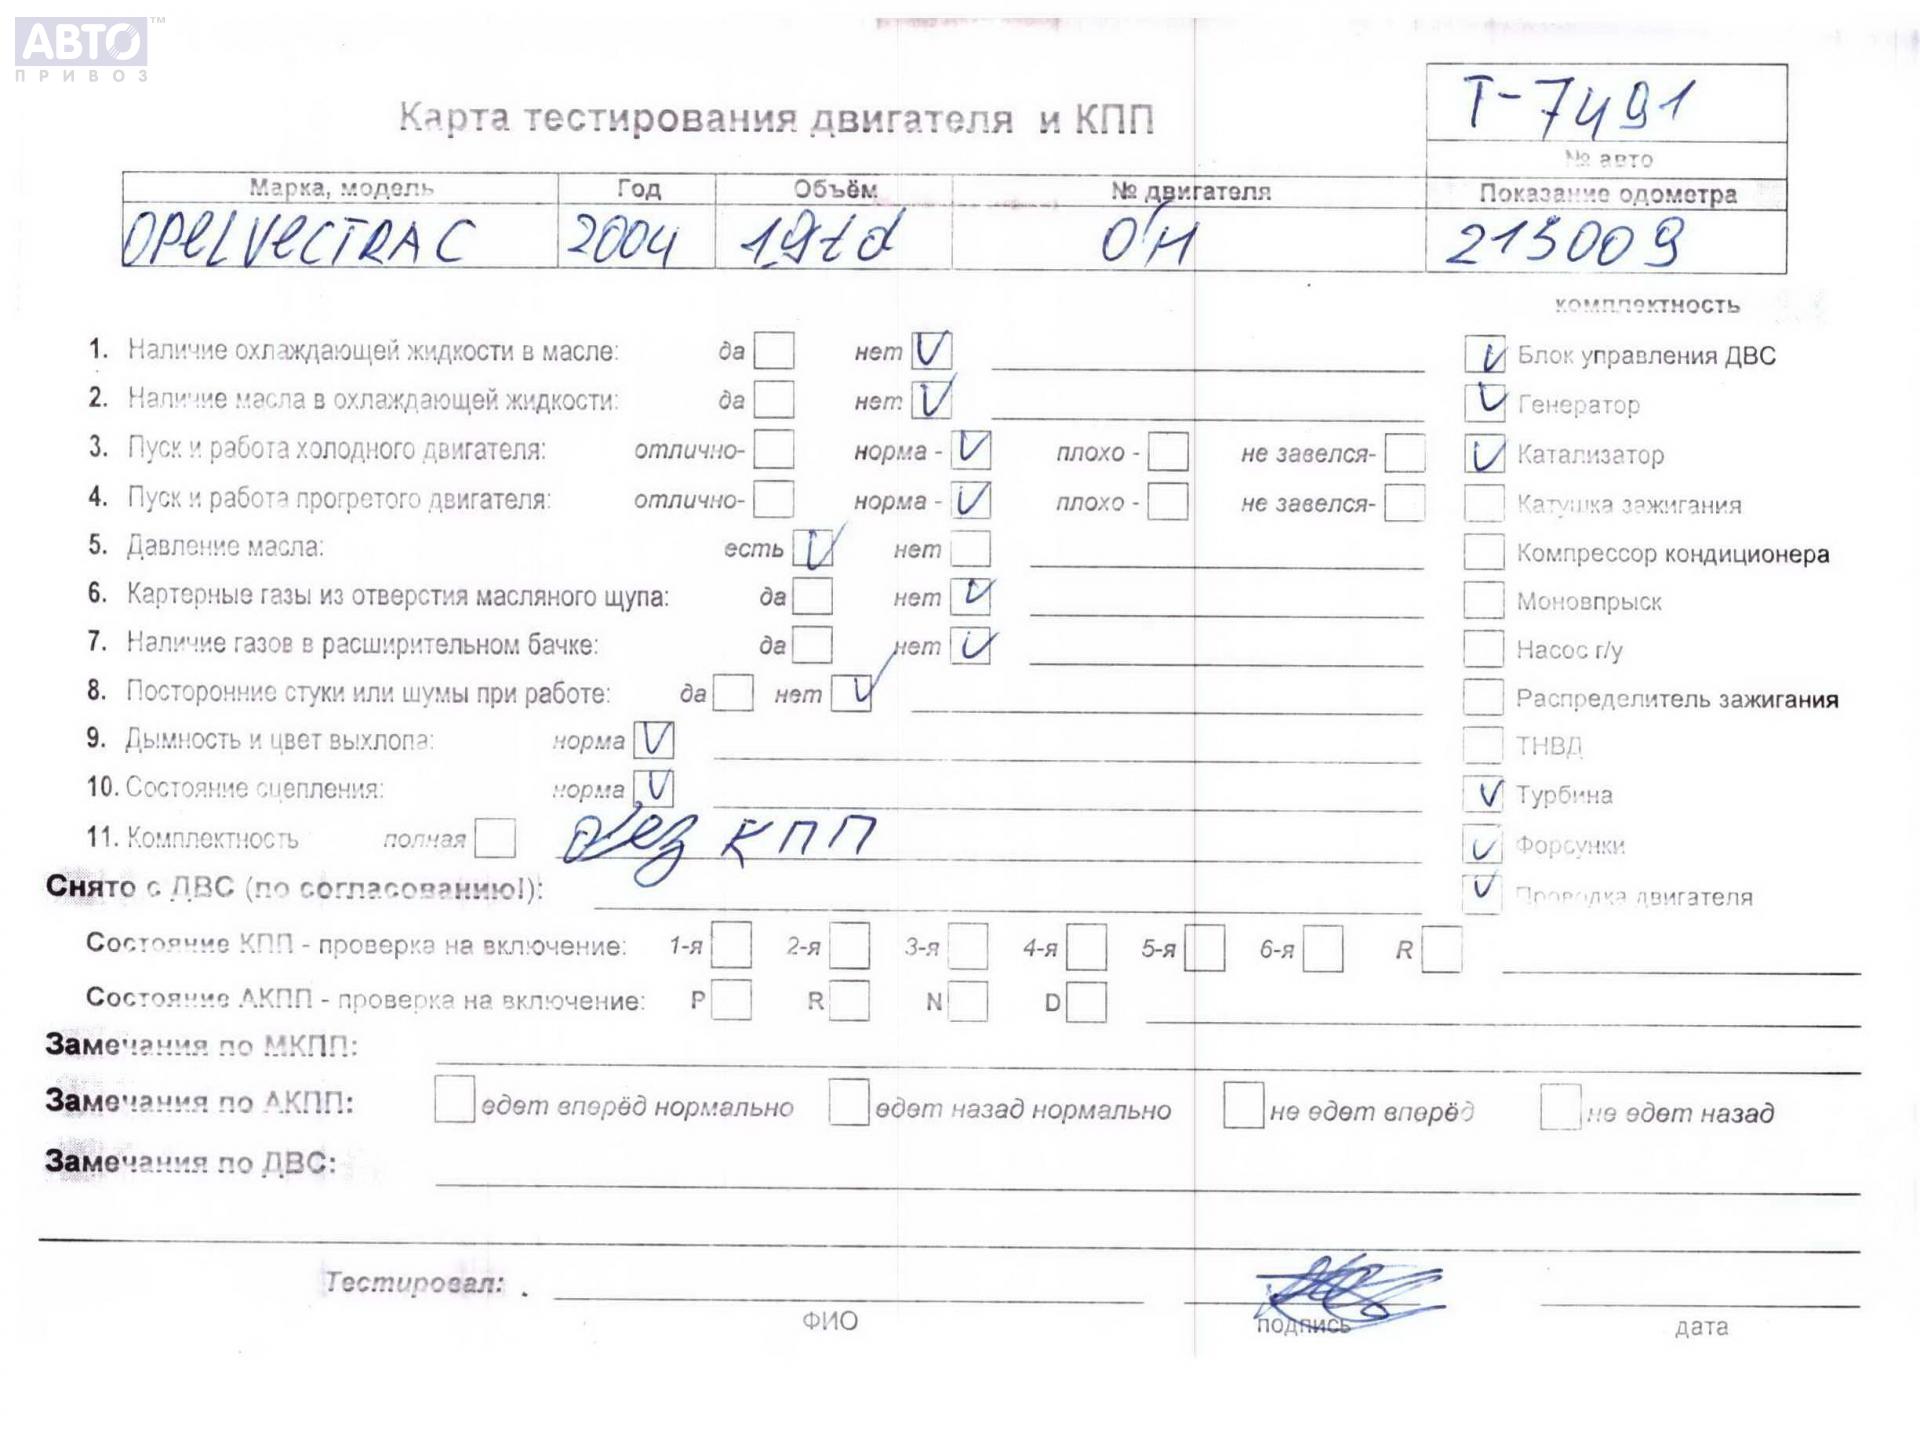 АВТО™
ПРИВОЗ
Т-7491
Карта тестирования двигателя и КПП
№ авто
Марка, модель Год Объём № двигателя Показание одометра
OPEL VECTRA C 2004 1,9td О/Н 215009
комплектность
1. Наличие охлаждающей жидкости в масле: да нет V V Блок управления ДВС
2. Наличие масла в охлаждающей жидкости: да нет V V Генератор
3. Пуск и работа холодного двигателя: отлично- норма - V плохо - не завелся- V Катализатор
4. Пуск и работа прогретого двигателя: отлично- норма - V плохо - не завелся- Катушка зажигания
5. Давление масла: есть V нет Компрессор кондиционера
6. Картерные газы из отверстия масляного щупа: да нет V Моновпрыск
7. Наличие газов в расширительном бачке: да нет V Насос г/у
8. Посторонние стуки или шумы при работе: да нет V Распределитель зажигания
9. Дымность и цвет выхлопа: норма V ТНВД
10. Состояние сцепления: норма V V Турбина
11. Комплектность полная без КПП V Форсунки
Снято с ДВС (по согласованию!): V Проводка двигателя
Состояние КПП - проверка на включение: 1-я 2-я 3-я 4-я 5-я 6-я R
Состояние АКПП - проверка на включение: P R N D
Замечания по МКПП:
Замечания по АКПП: едет вперёд нормально едет назад нормально не едет вперёд не едет назад
Замечания по ДВС:
Тестировал:
ФИО подпись дата